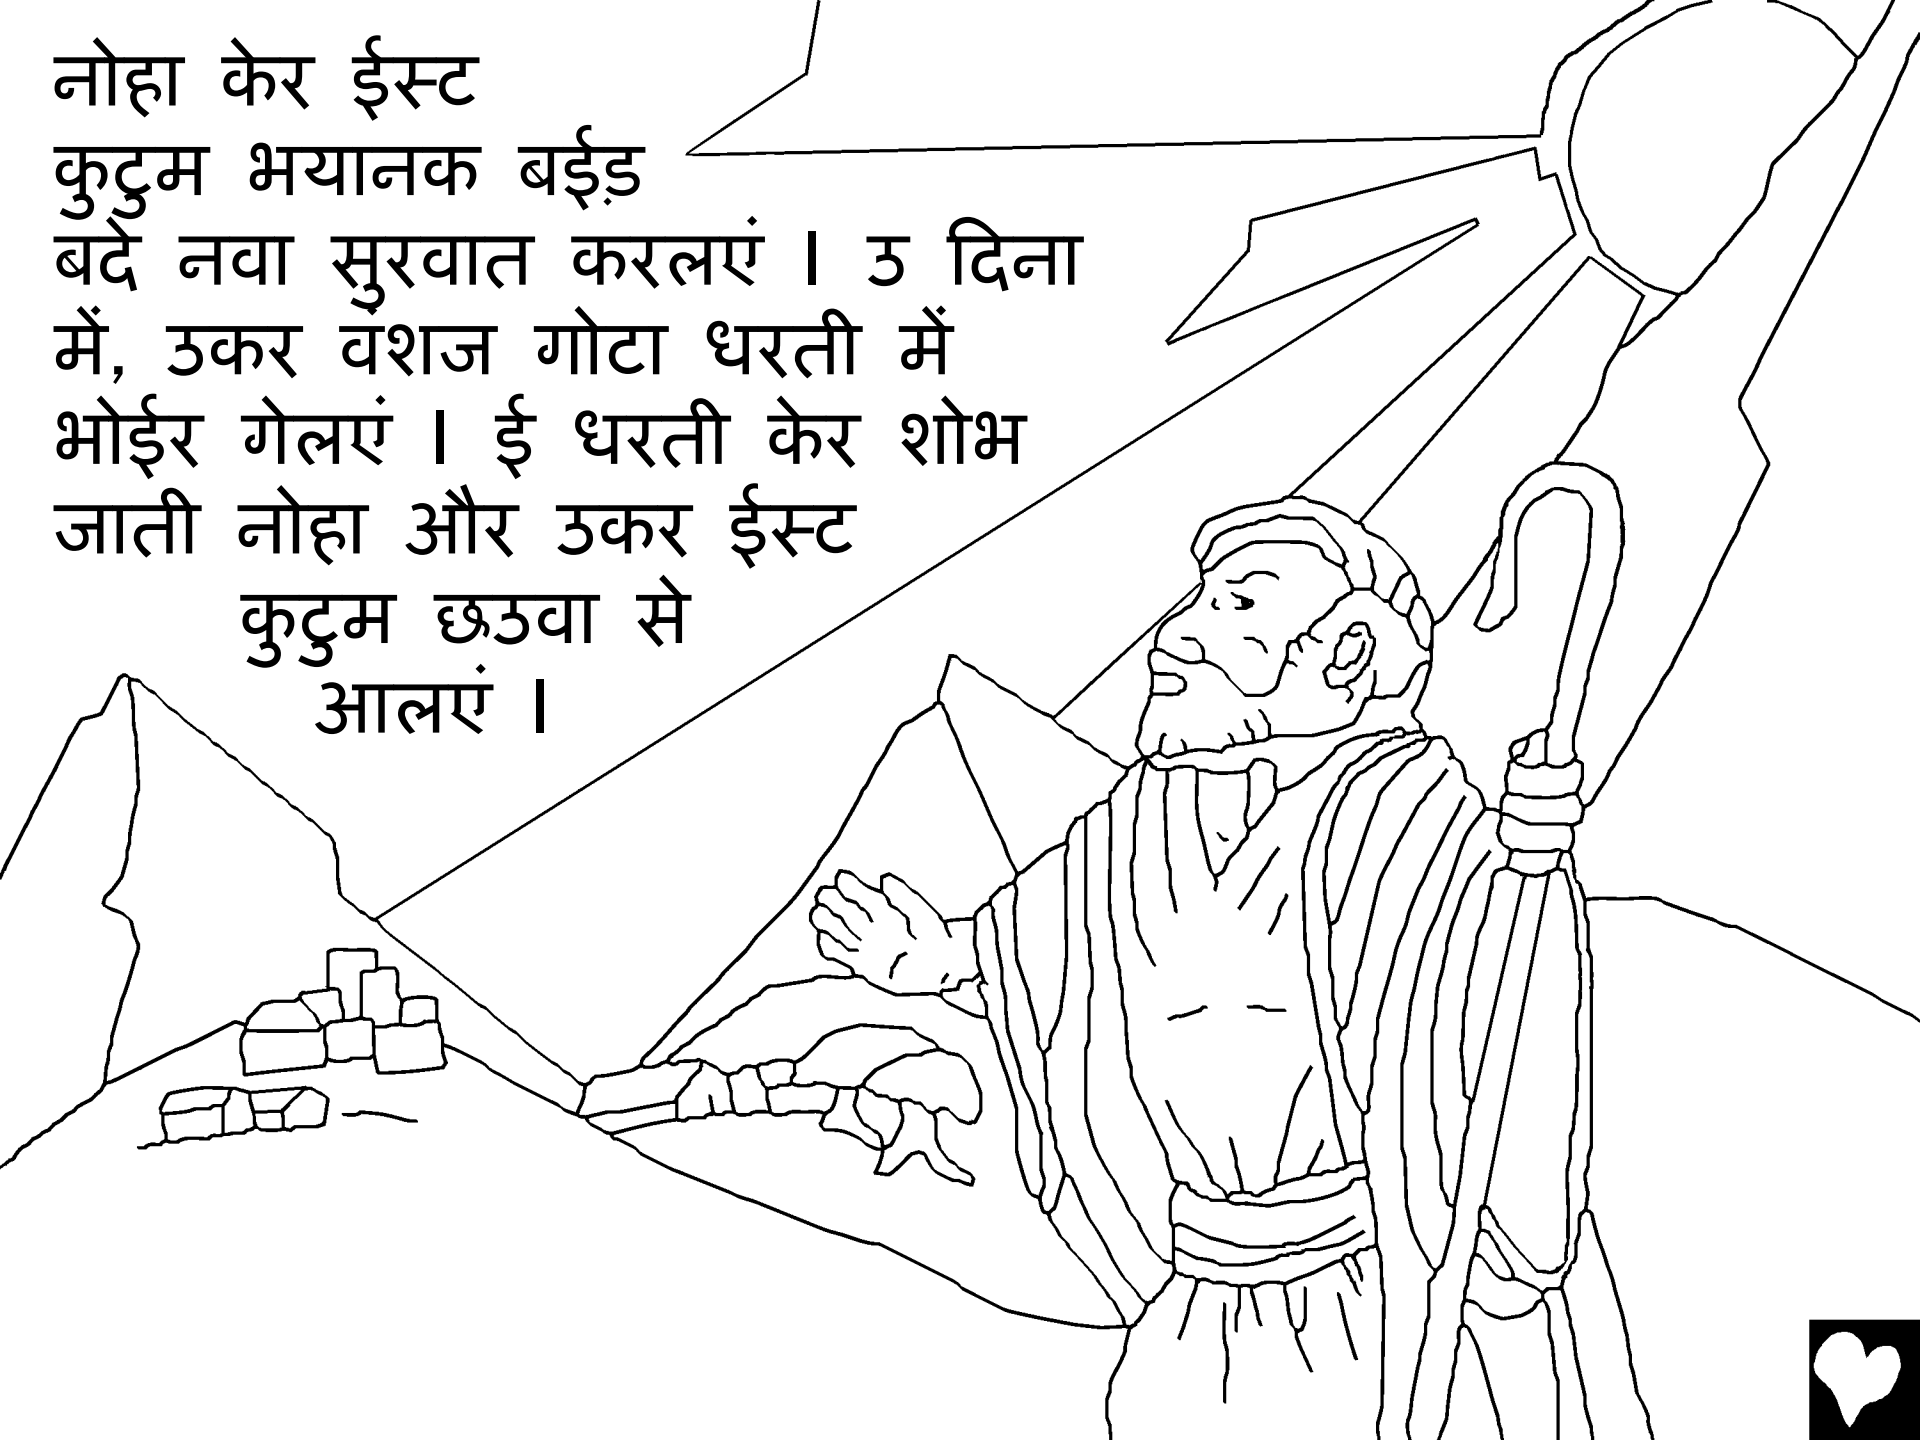 नोहा केर ईस्ट
कुटुम भयानक बईड़
बदे नवा सुरवात करलएं I उ दिना
में, उकर वंशज गोटा धरती में
भोईर गेलएं I ई धरती केर शोभ
जाती नोहा और उकर ईस्ट
कुटुम छउवा से
आलएं I